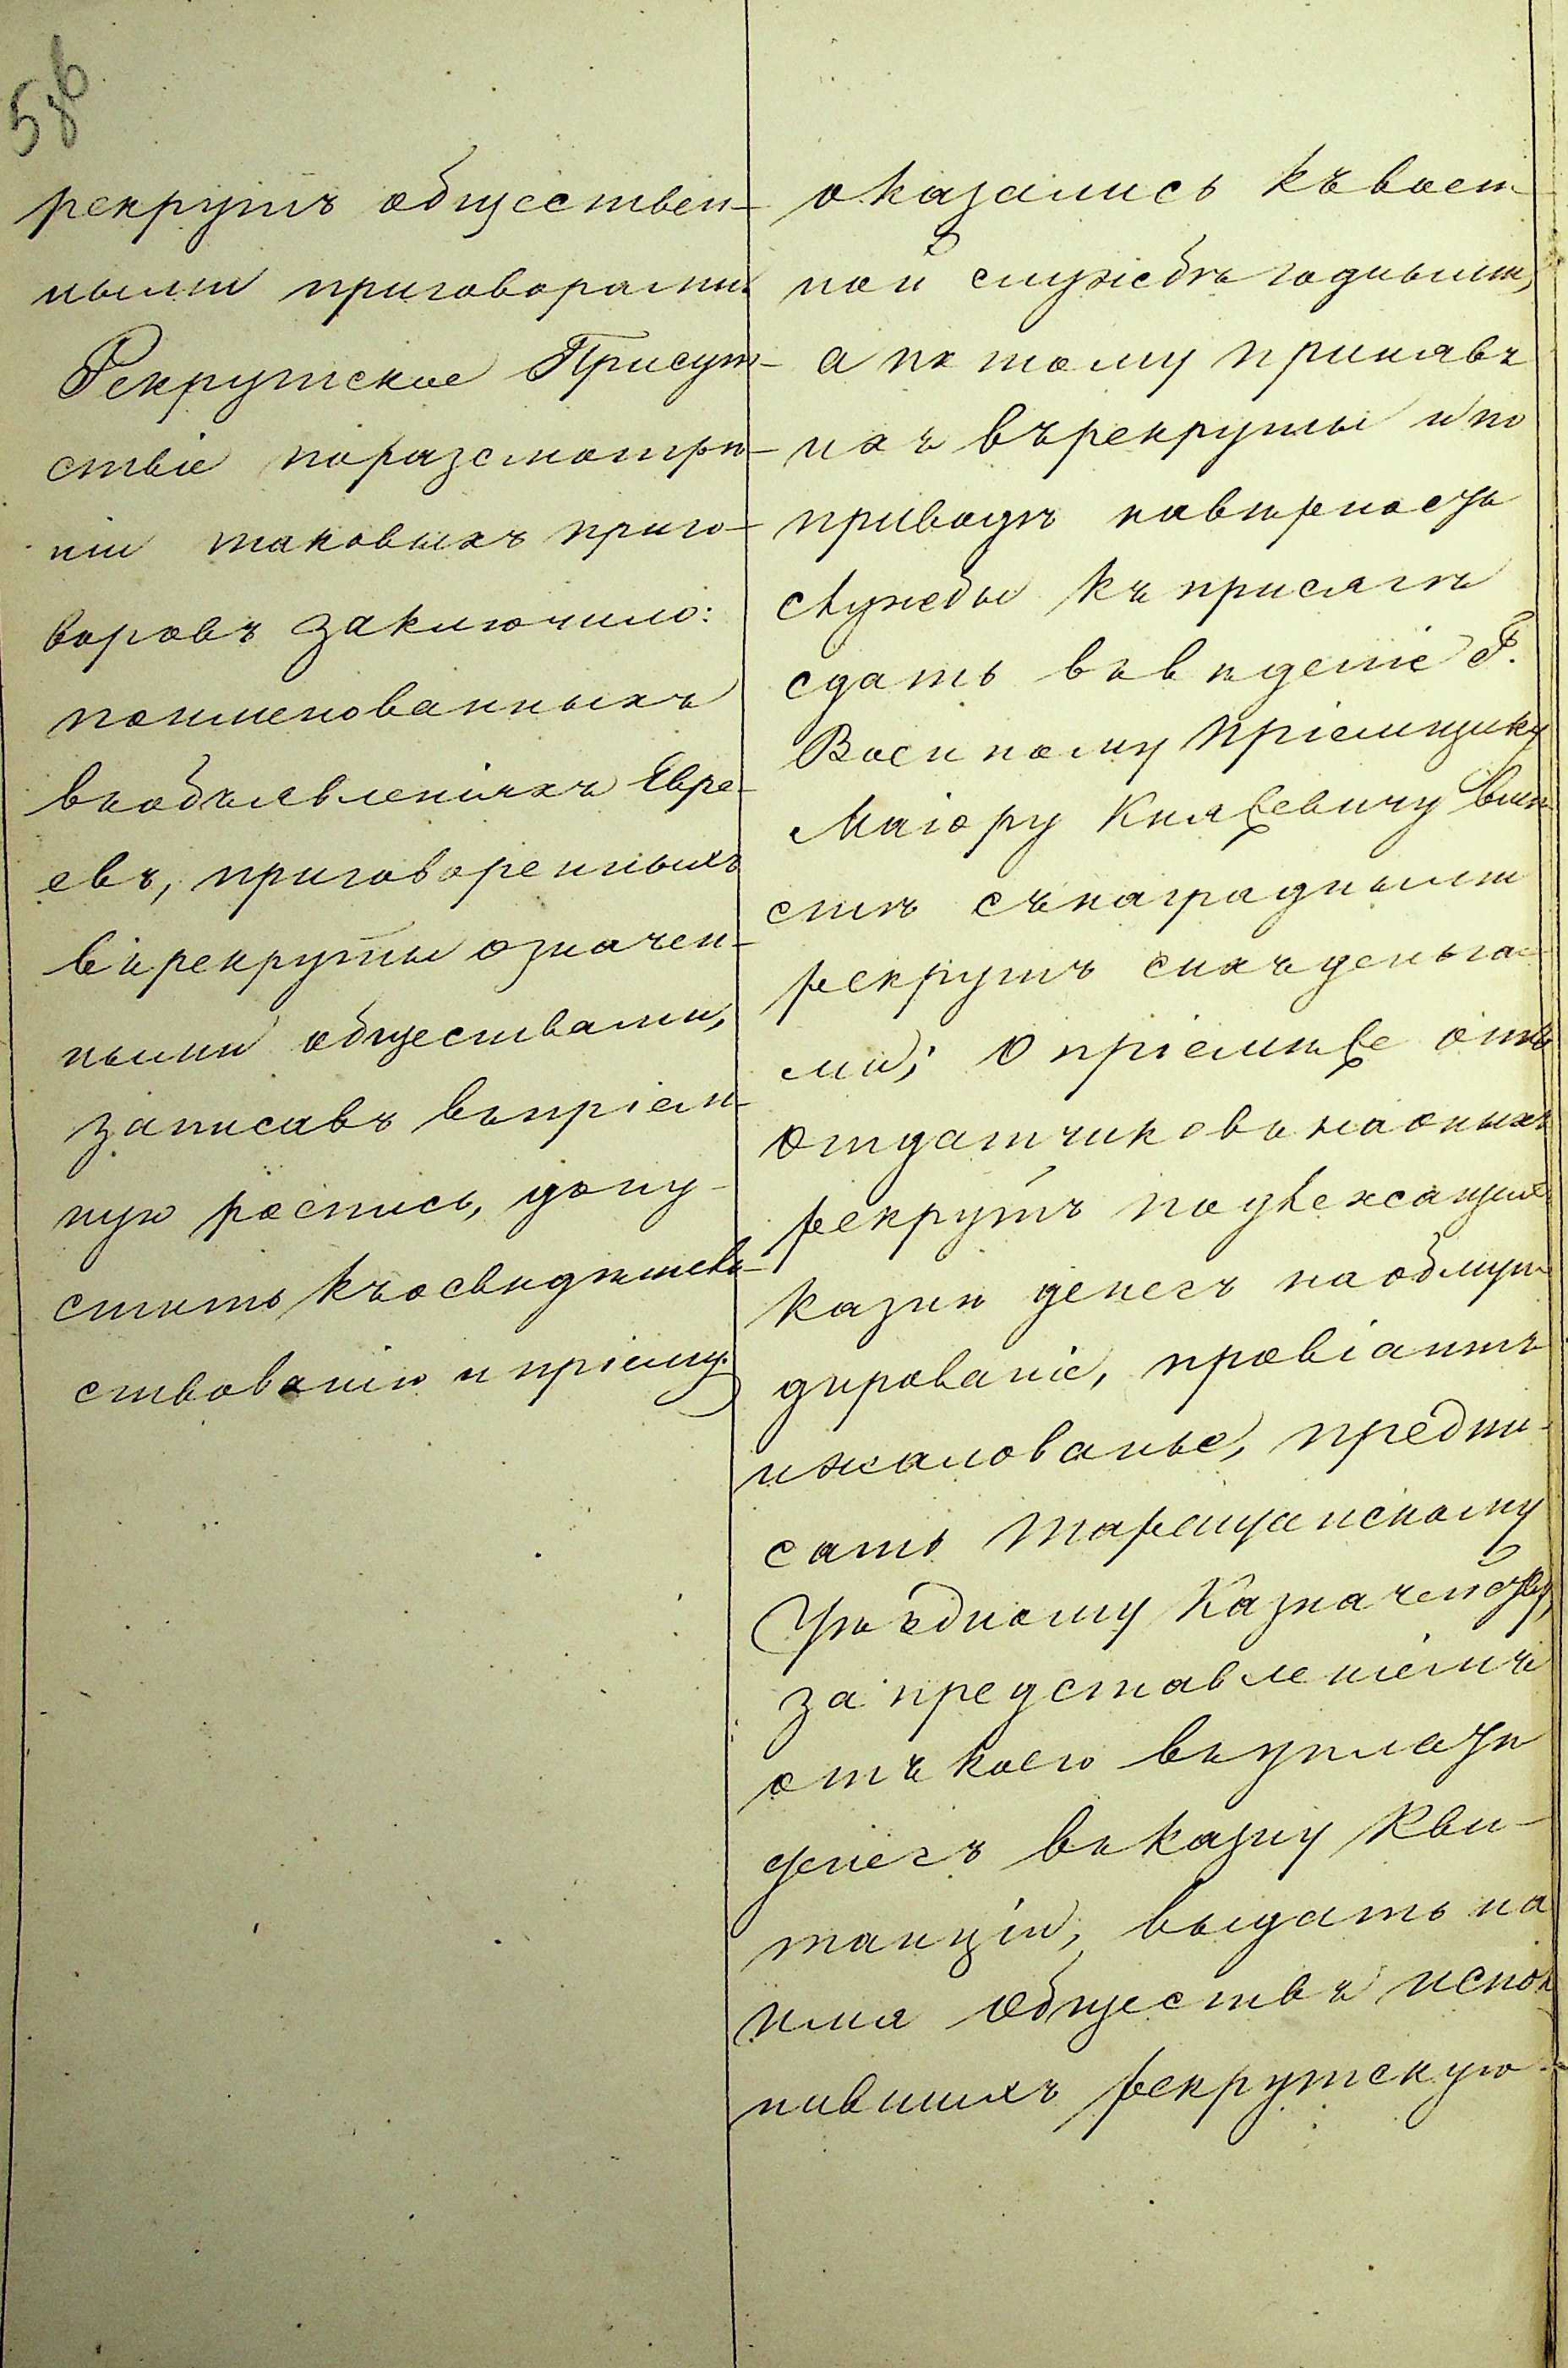 рекрутъ обществен-
ными приговорами.
Рекрутское Присут-
ствіе поразсмотрѣ-
ніи таковыхъ приго-
воровъ заключило:
поименованныхъ
въобъявленіяхъ Евре-
евъ, приговоренныхъ
върекруты означен-
ными обществами,
записавъ въпріем-
ную роспись, допу-
стить къосвидѣтель-
ствованію и пріему.
оказались къвоен-
ной службѣ годными,
а по тому принявъ
ихъ върекруты ипо
приводѣ навѣрность
службы къ присягѣ
сдать въвѣденіе Г.
Военному пріемщику
Маіору Князевичу вмѣ-
стѣ съ наградными
рекрутъ сихъ деньга-
ми; О пріемѣже отъ
отдатчиковъ наоныхъ
рекрутъ подлежащихъ
казнѣ денегъ наобмун-
дированіе, провіантъ
ижалованье, предпи-
сать Таращанскому
Уѣздному Казначейству,
за представленіемъ
отъ коего въуплатѣ
денегъ въказну Кви-
танціи, выдать на
имя Обществъ испол-
нившихъ рекрутскую